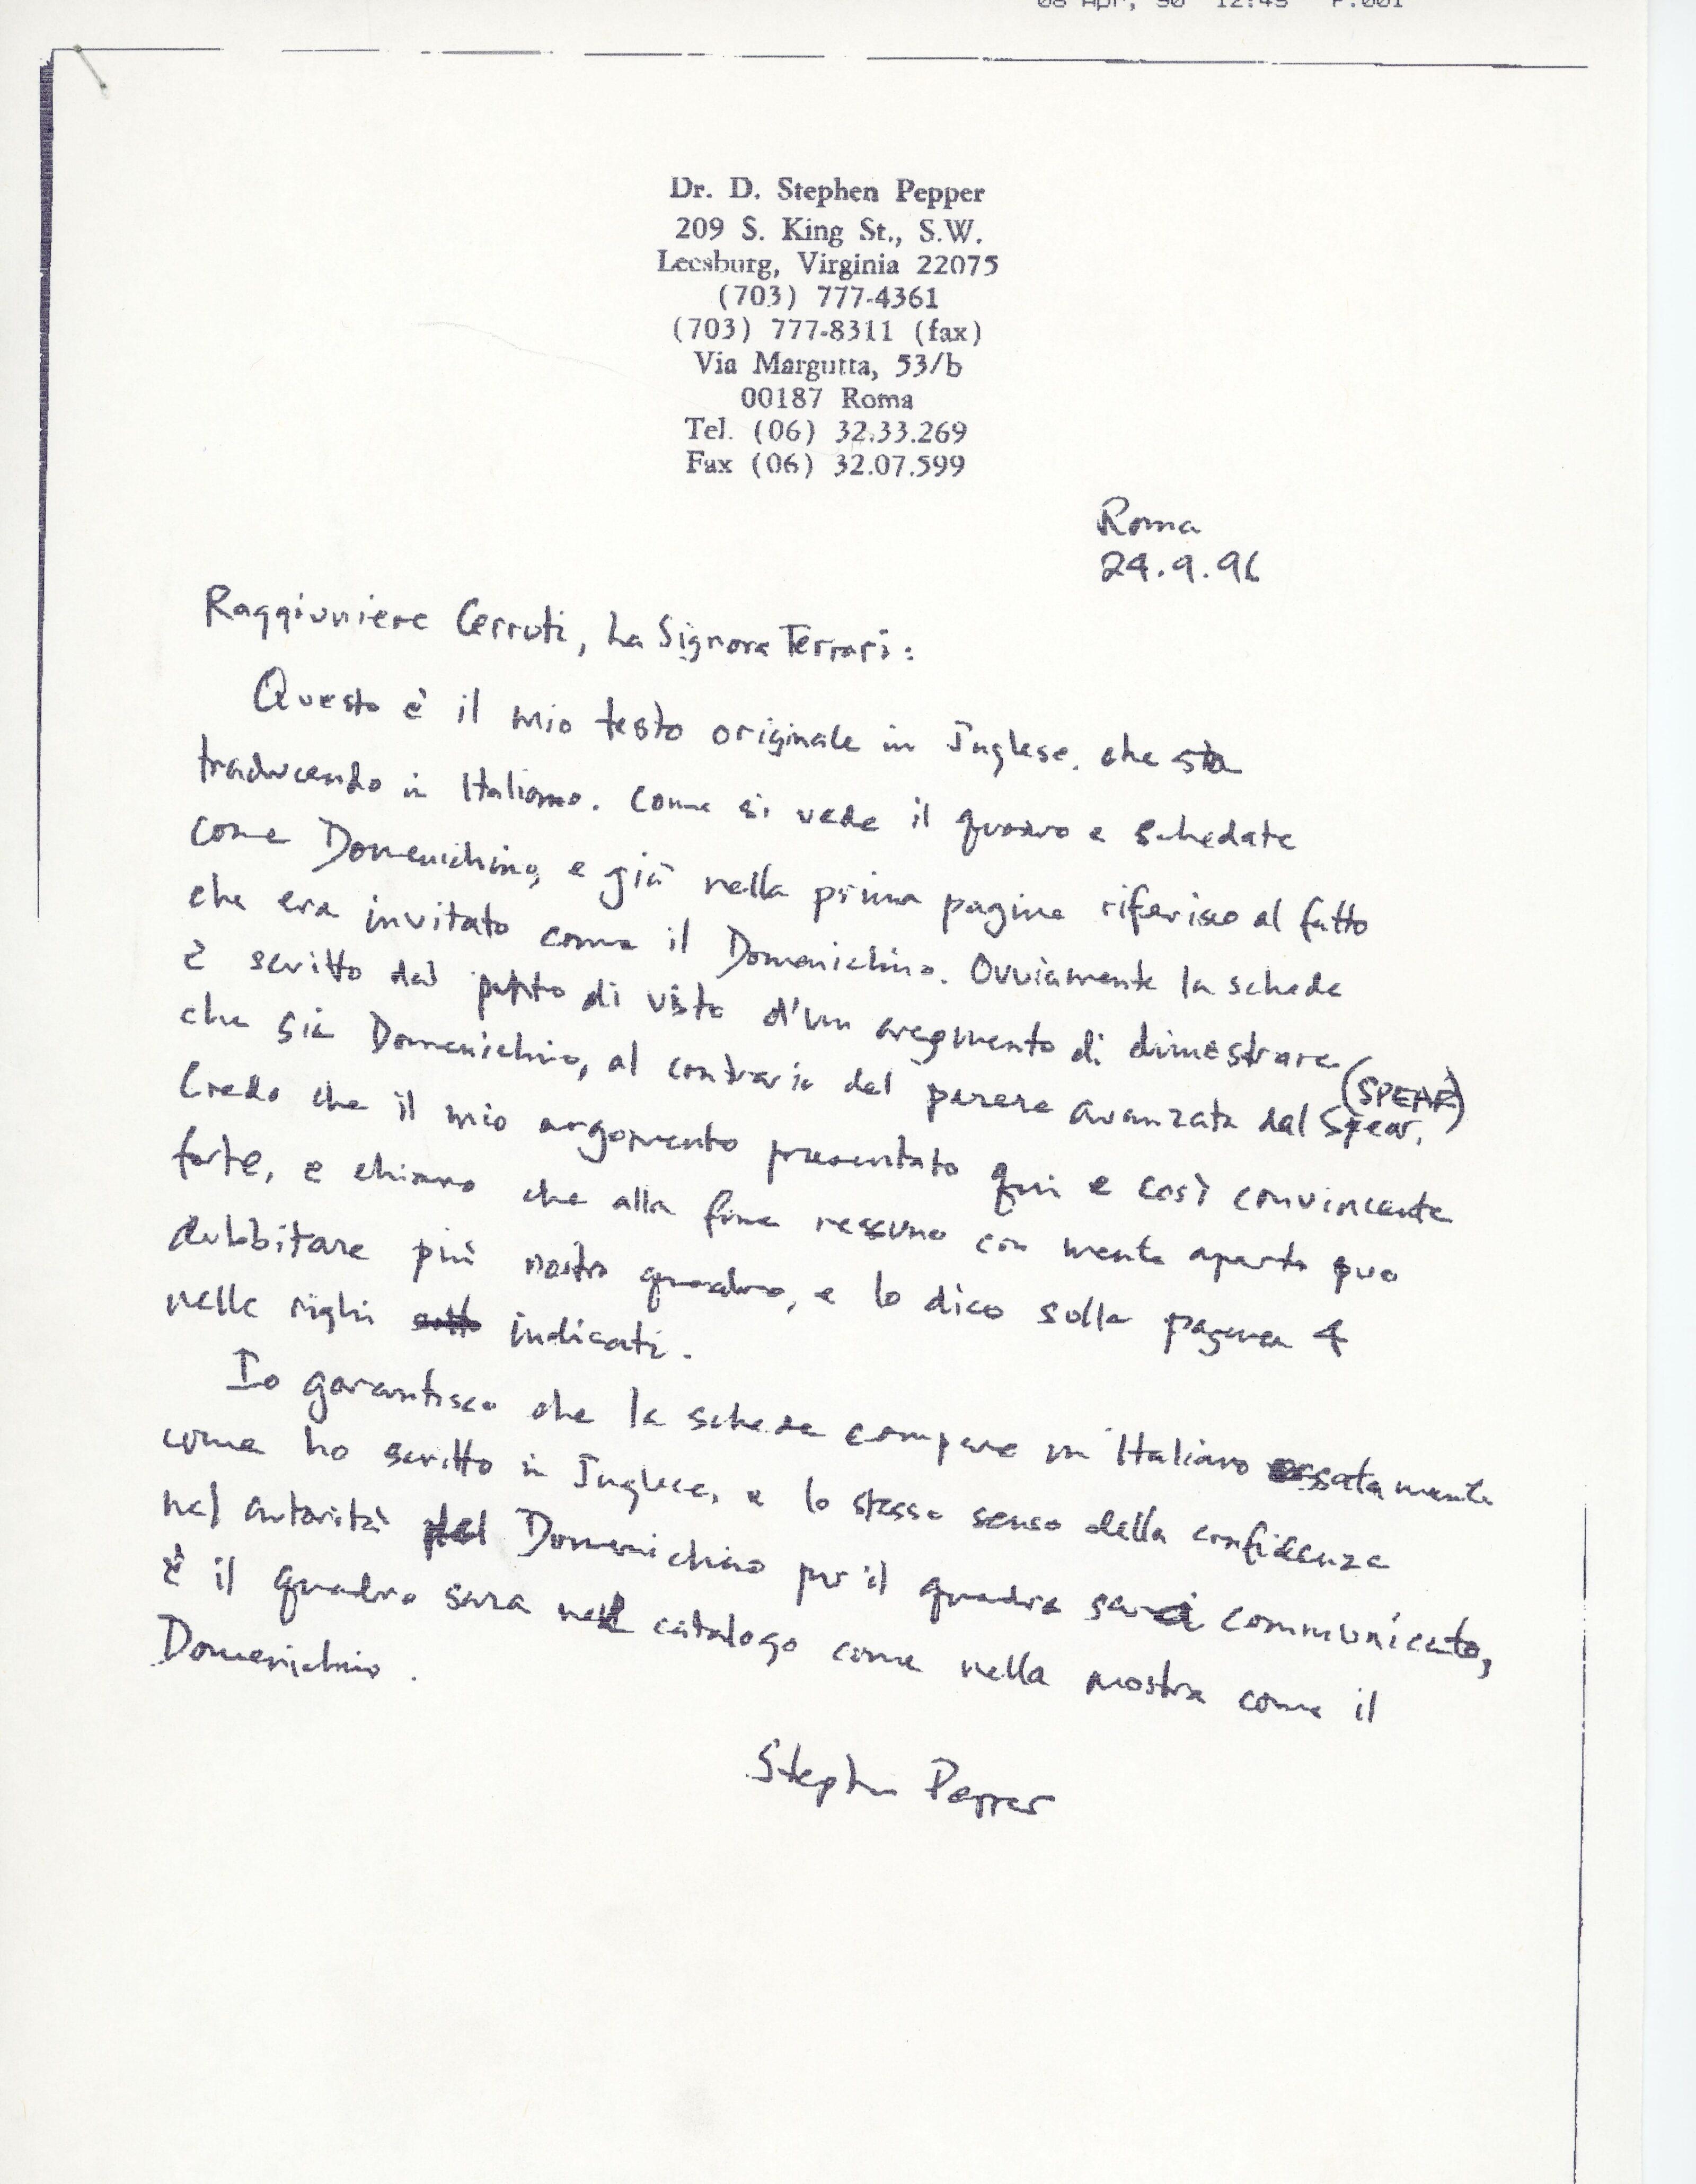 08 Apr, 90 12:45 P.001
Dr. D. Stephen Pepper
209 S. King St., S.W.
Leesburg, Virginia 22075
(703) 777-4361
(703) 777-8311 (fax)
Via Margutta, 53/b
00187 Roma
Tel. (06) 32.33.269
Fax (06) 32.07.599
Roma
24.9.96
Raggiuniere Cerruti, La Signora Ferrari:
Questo è il mio testo originale in Inglese, che sta
traducendo in Italiano. Come si vede il quadro e schedate
come Domenichino, e già nella prima pagina riferisco al fatto
che era invitato come il Domenichino. Ovviamente la scheda
è scritto dal punto di visto d'un aregmento di dimostrare
che sia Domenichino, al contrario del parere avanzata dal Spear. (SPEAR)
Credo che il mio argomento presentato qui e così convincente
forte, e chiaro che alla fine nessuno con mente aperta puo
dubbitare più nostro quadro, e lo dico sulla pagina 4
nelle righi indicati.
Io garantisco che la scheda compare in Italiano essatamente
come ho scritto in Inglese, e lo stesso senso della confidenza
nel autorità del Domenichino per il quadro sarà communicato,
è il quadro sara nel catalogo come nella mostra come il
Domenichino.
Stephen Pepper